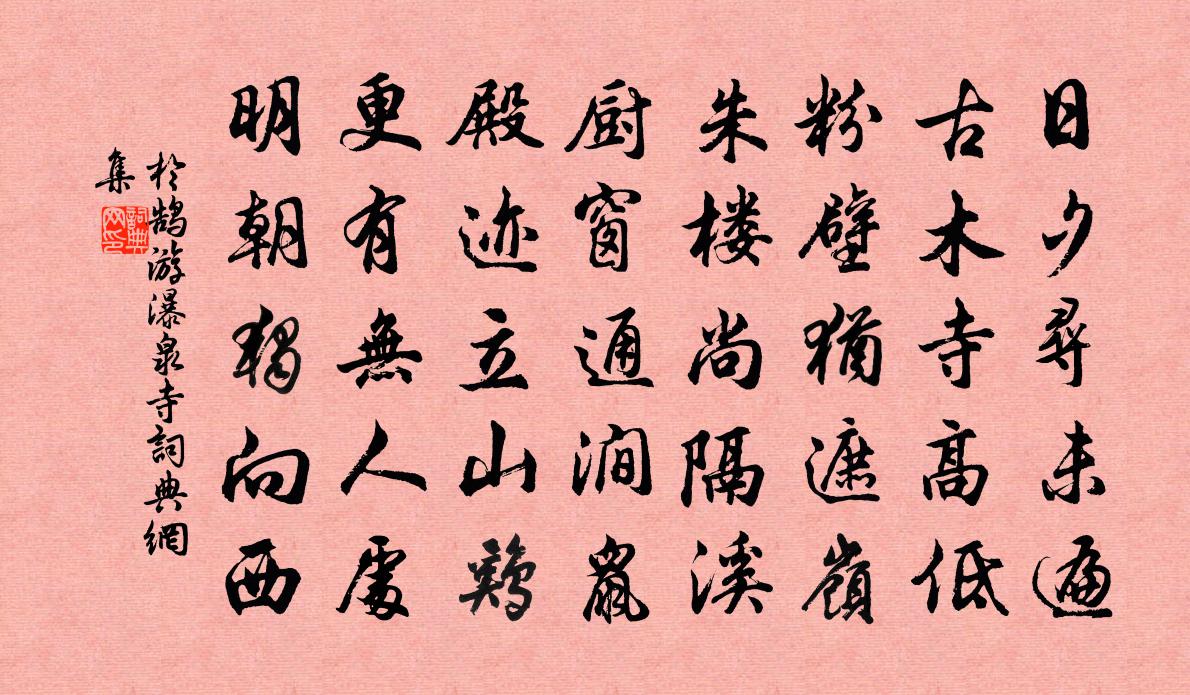 日夕尋未遍
古木寺高低
粉壁猶遮嶺
朱楼尚隔溪
厨窗通澗鼠
殿迹立山鷄
更有無人處
明朝獨向西
於鹄游瀑泉寺詞典網
集
詞典网印